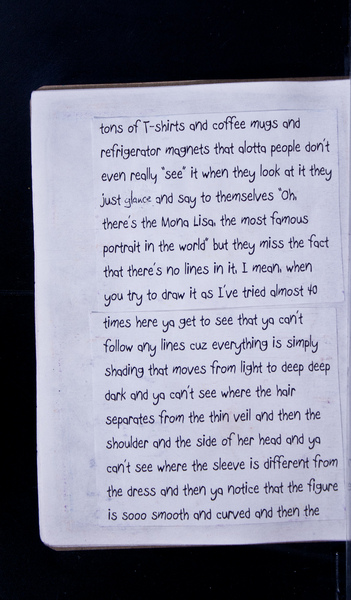 tons of T-shirts and coffee mugs and
refrigerator magnets that alotta people don't
even really "see" it when they look at it they
just glance and say to themselves "Oh,
there's the Mona Lisa, the most famous
portrait in the world" but they miss the fact
that there's no lines in it, I mean, when
you try to draw it as I've tried almost 40
times here ya get to see that ya can't
follow any lines cuz everything is simply
shading that moves from light to deep deep
dark and ya can't see where the hair
separates from the thin veil and then the
shoulder and the side of her head and ya
can't see where the sleeve is different from
the dress and then ya notice that the figure
is sooo smooth and curved and then the